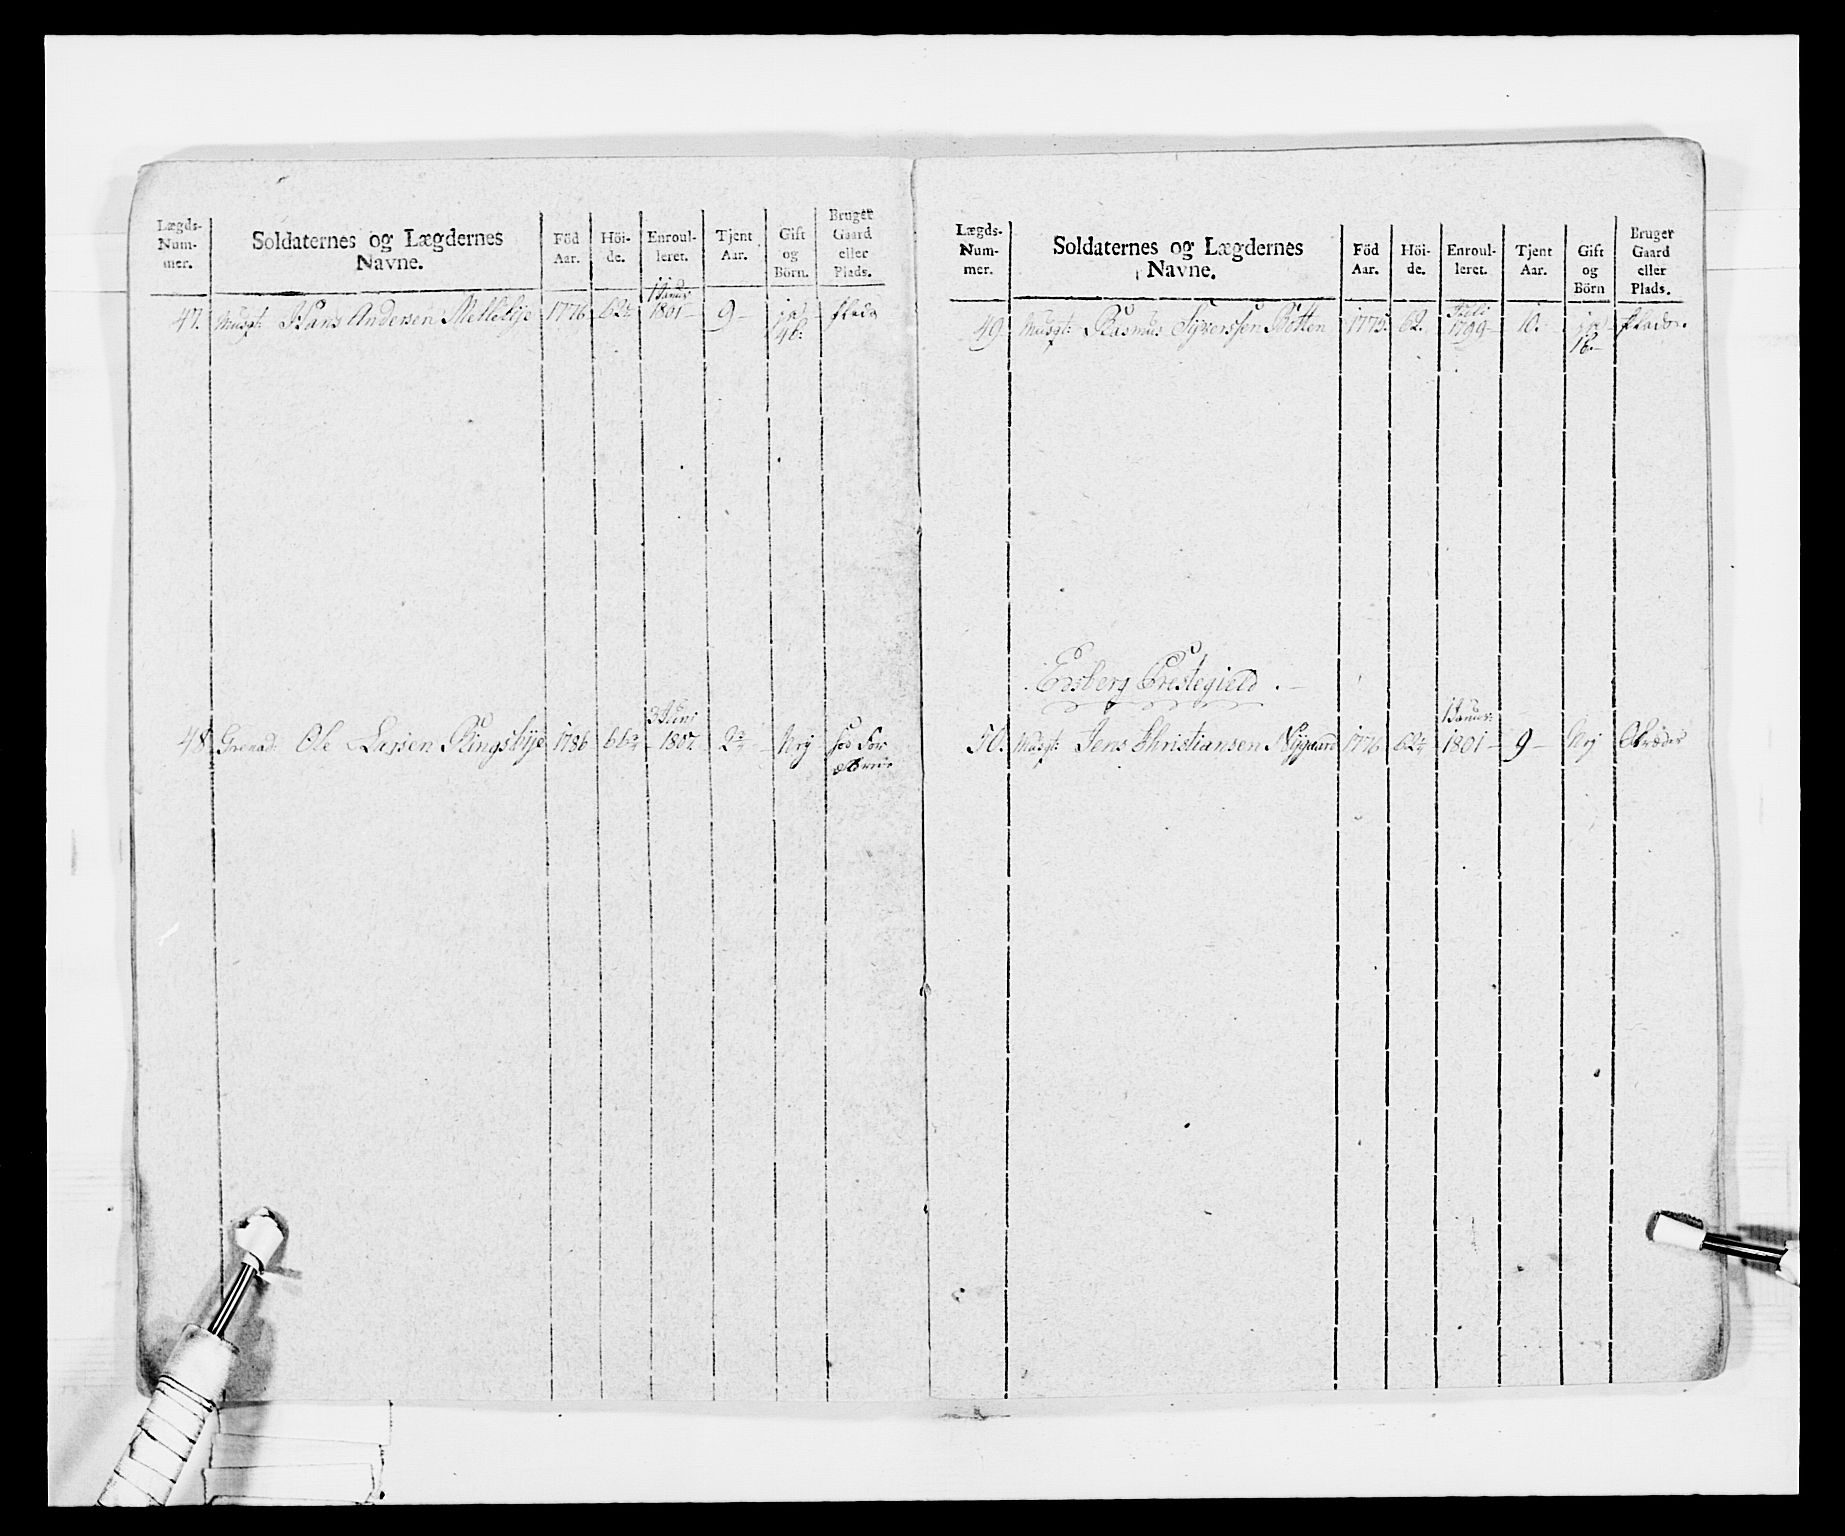 Lægds-
Num-
mer.
Soldaternes og Lægdernes
Navne.
Föd
Aar.
Höi-
de.
Enroul-
leret.
Tjent
Aar.
Gift
og
Börn.
Bruger
Gaard
eller
Plads.
1 Janur
47. Musqt: Hans Andersen 1776 62½ 1801 9 ja
4 b.
3 Juni
48. Grenad: Ole Larsen Ringsbye 1786 1807 2¾ Nej hos For
Lægds-
Num-
mer.
Soldaternes og Lægdernes
Navne.
Föd
Aar.
Höi-
de.
Enroul-
leret.
Tjent
Aar.
Gift
og
Börn
Bruger
Gaard
eller
Plads.
49. Musqt: Rasmus Syversen Botten 1775 62. 1799 10. ja
1 b.
Edsberg Prestegield.
1 Janur:
50. Musqt: Jens Christiansen Nygaard 1776 62½ 1801 9 Nej